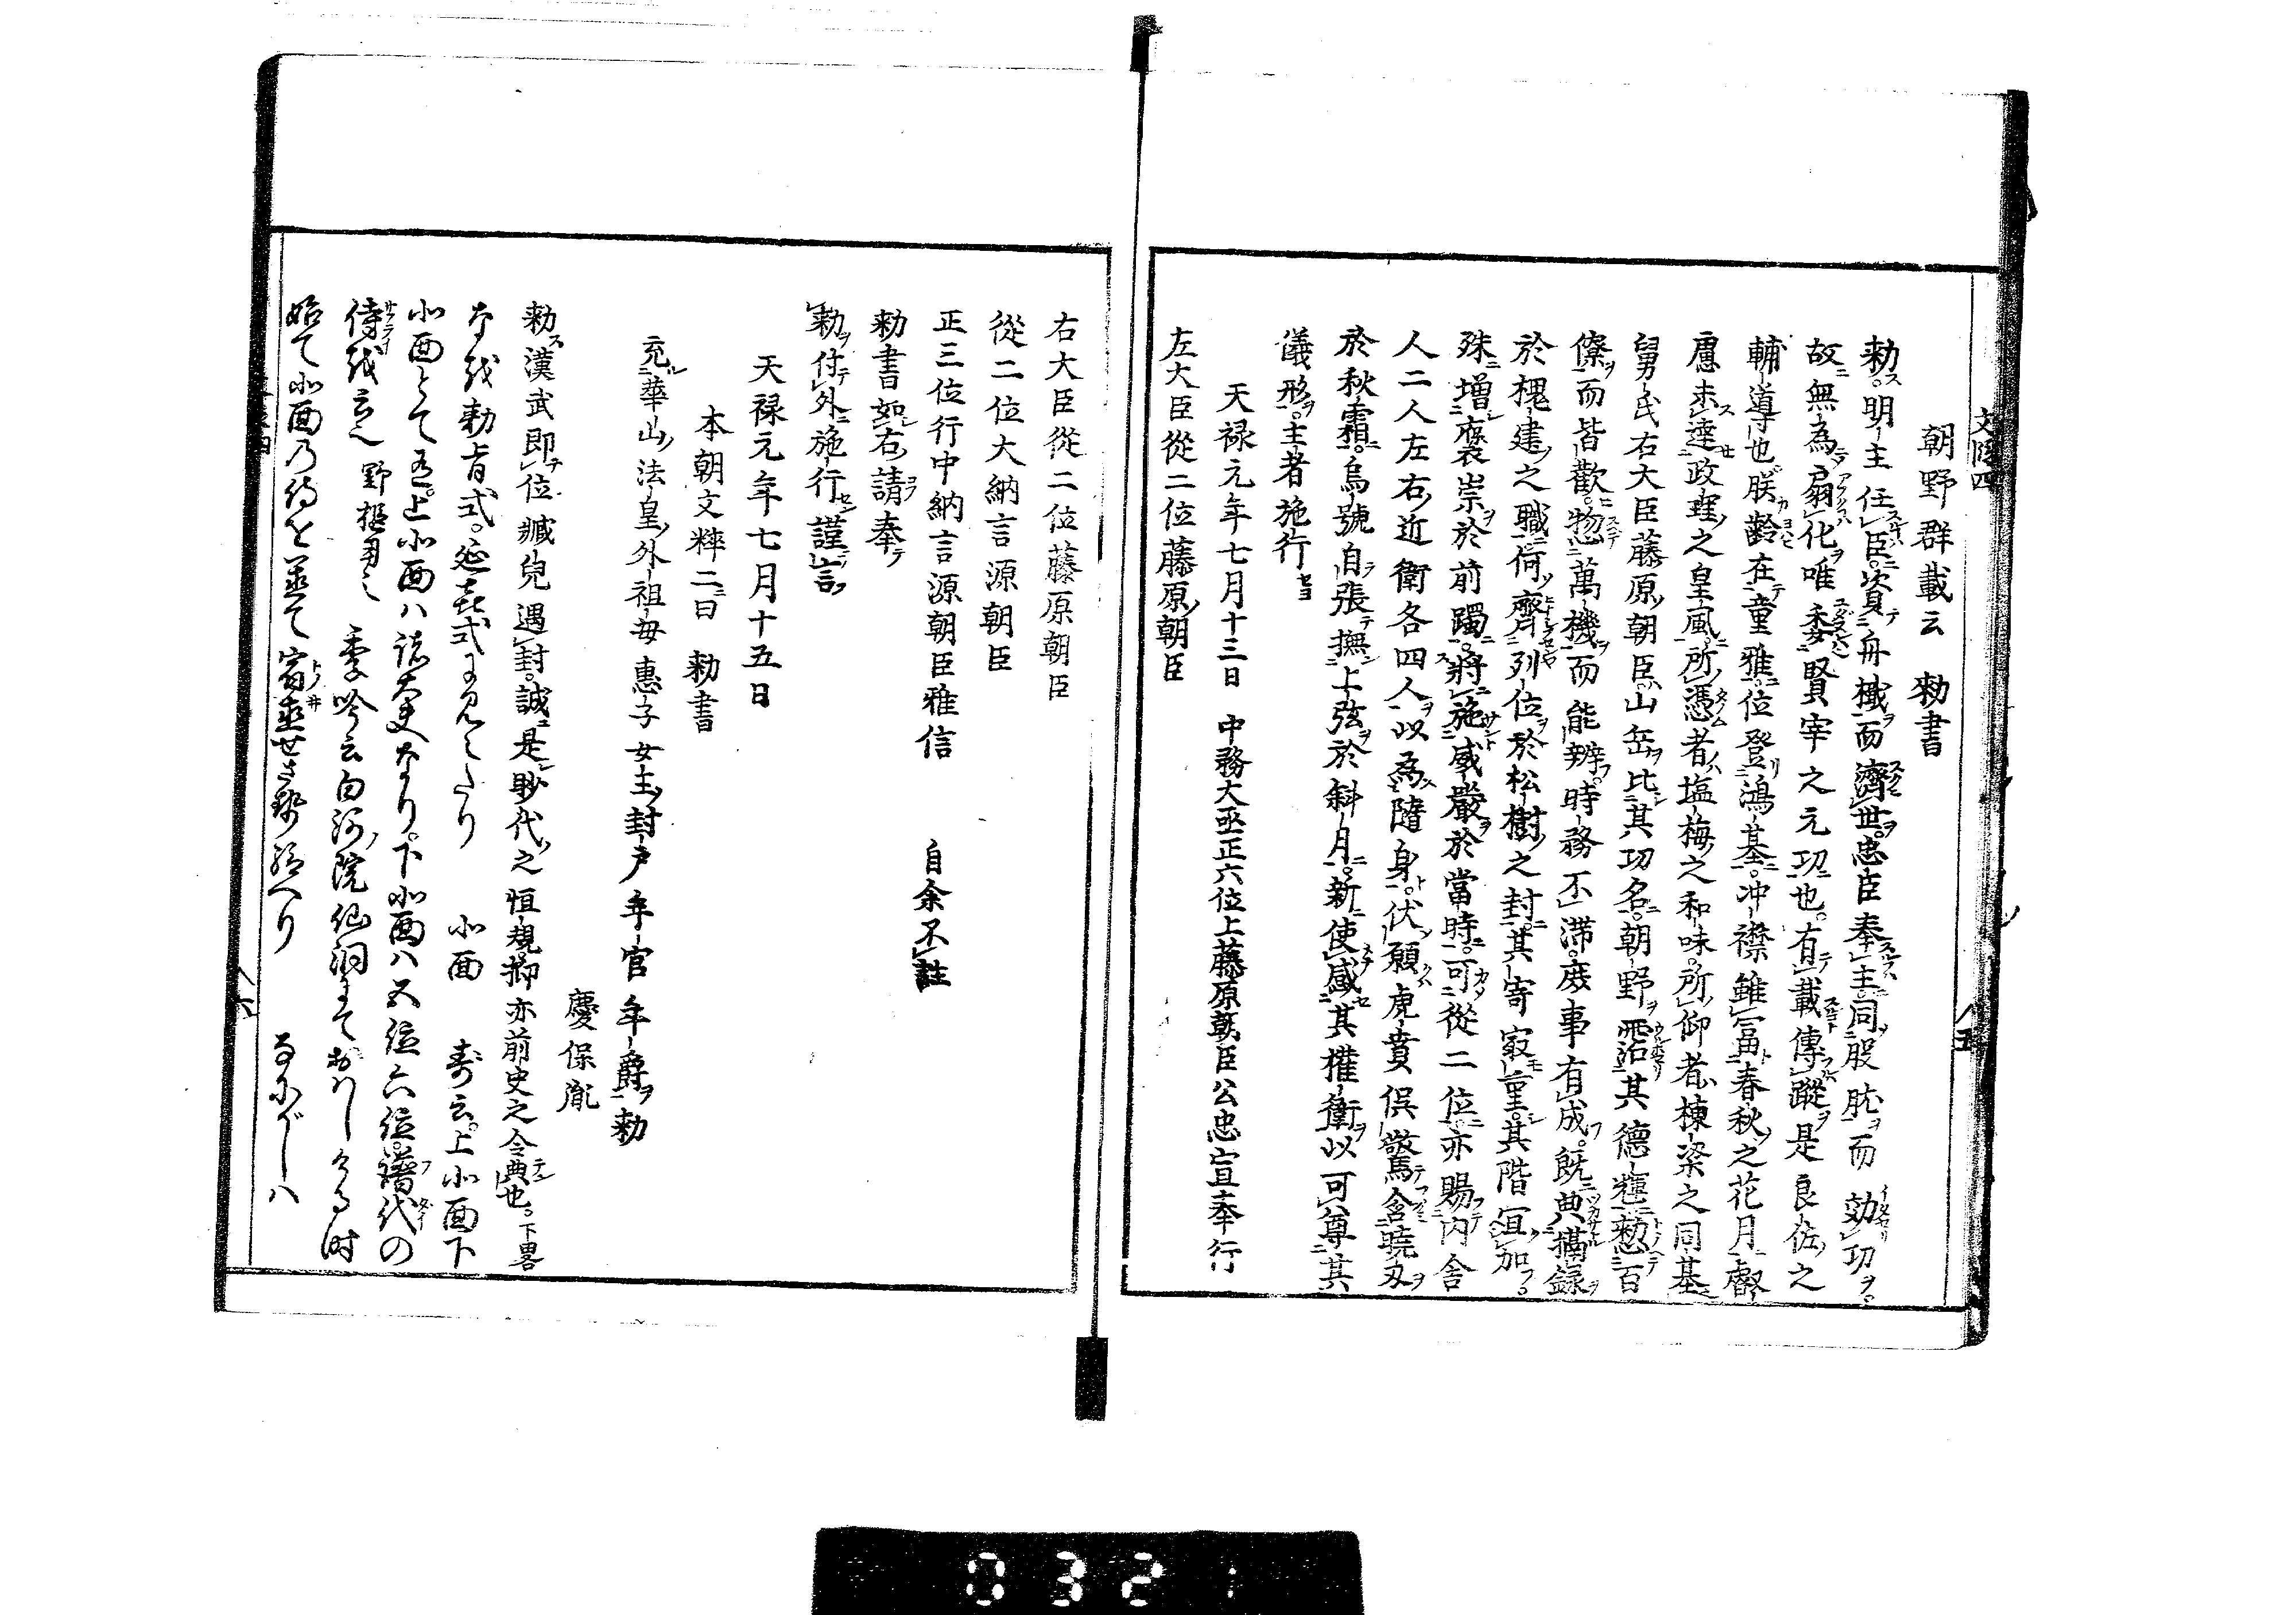 文段四
八五
朝野群載云　勅書
勅。明主任臣。資舟檝而濟世。忠臣奉主。同股肱而効功。
故無為扇化唯委賢宰之元功也。有載傳蹤是良佐之
輔導也朕齡在童雅。位登鴻基。冲襟雖冨春秋之花月叡
慮未達政理之皇風。所憑者塩梅之和味。所仰者棟梁之同基
舅氏右大臣藤原朝臣山岳比其功名。朝野霑其德輝惣百
僚而皆歡。惣萬機而能辨。時務不滞。庶事有成。既典攝録
於槐建之職荷齊列位於松樹之封。其寄寂重。其階冝加。
殊增襃崇於前躅。將施威嚴於當時。可從二位亦賜内舎
人二人左右近衛各四人以為隨身。伏願虎賁倶驚含曉刃
於秋霜。烏號自張撫上弦於斜月。新使感其權衛以可尊其
儀形。主者施行
天禄元年七月十三日　中務大丞正六位上藤原朝臣公忠宣奉行
左大臣從二位藤原朝臣
右大臣從二位藤原朝臣
從二位大納言源朝臣
正三位行中納言源朝臣雅信　自余不註
勅書如右請奉
勅付外施行謹言
天禄元年七月十五日
本朝文粹二曰　勅書
充華山法皇外祖母惠子女王封戸年官年爵勅
慶保胤
勅漢武即位臧兒遇封。誠是眇代之恒規。抑亦前史之令典也。下畧
なを勅旨式。延喜式に見えたり　北面　寿云。上北面下
北面とて有。上北面ハ諸大夫なり。下北面ハ五位六位。譜代の
侍を云　野槌同之　季吟云白河院仙洞にておハしける時
始て北面乃侍を置て宿直せさせ給へり　なにがしハ
八六